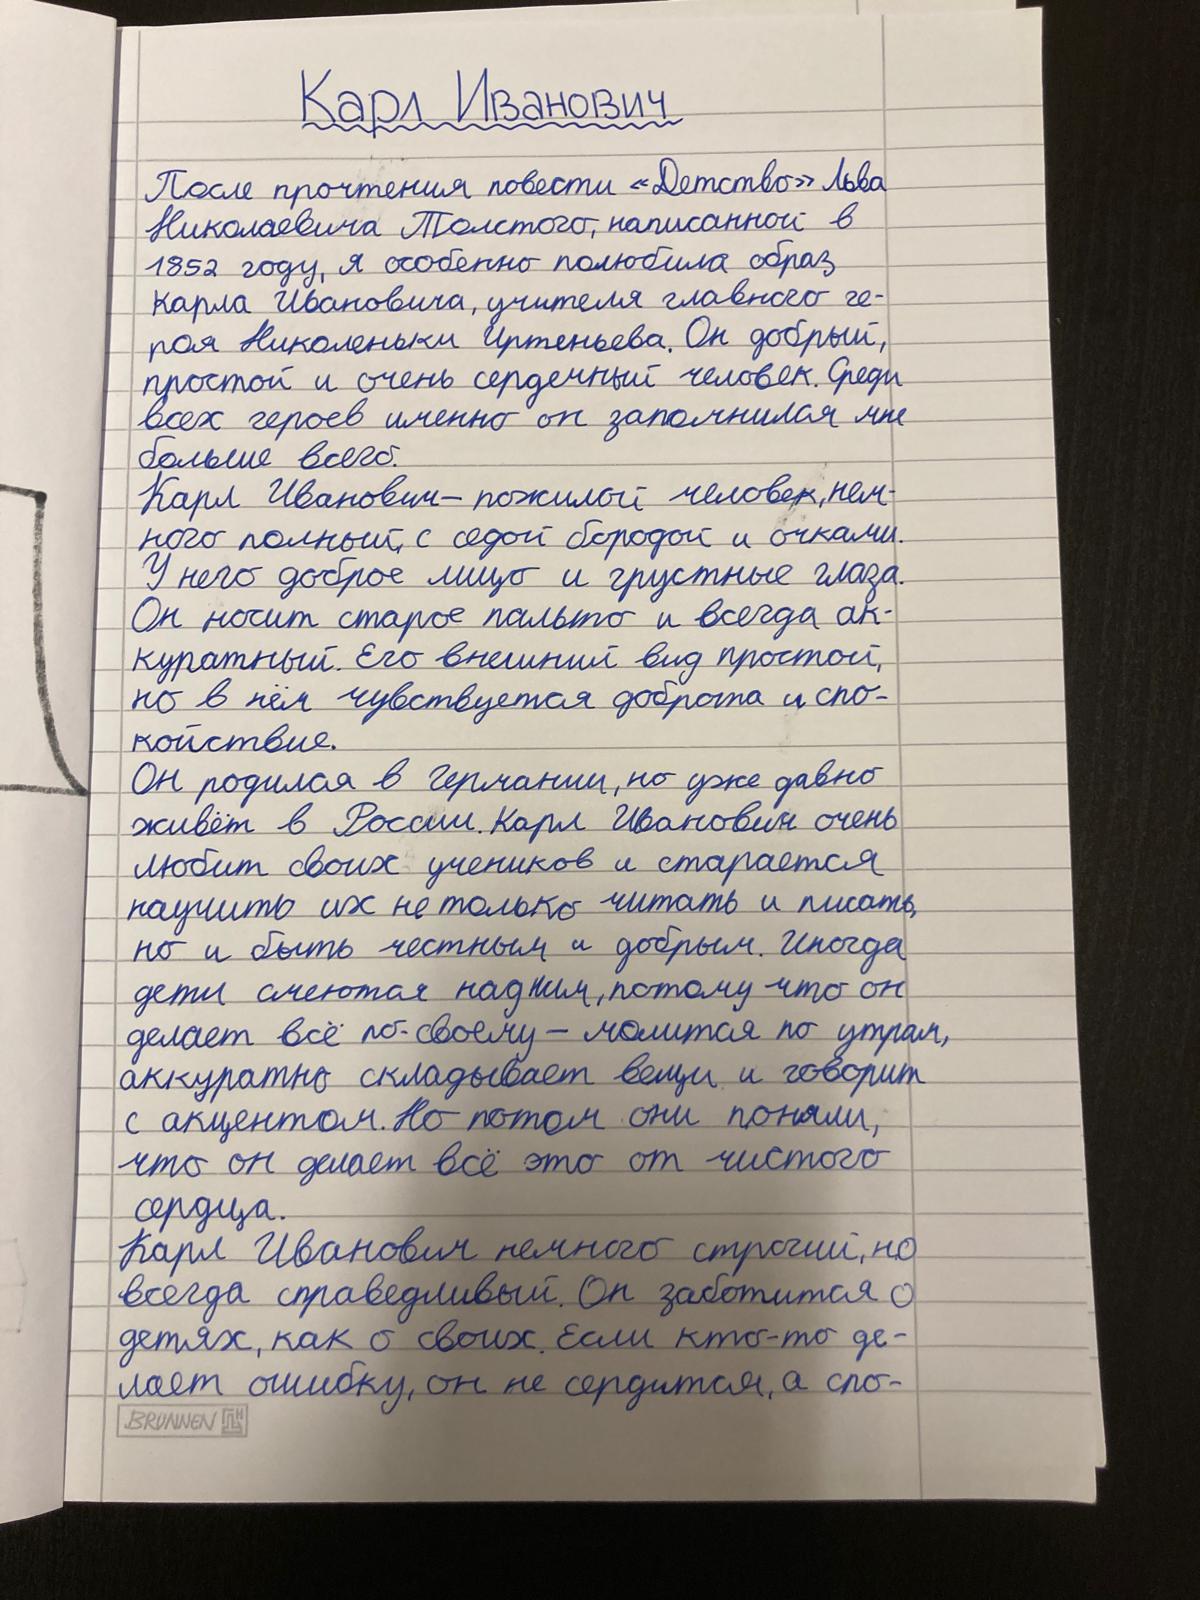 Карл Иванович
После прочтения повести «Детство» Льва
Николаевича Толстого, написанной в
1852 году, я особенно полюбила образ
Карла Ивановича, учителя главного ге-
роя Николеньки Иртеньева. Он добрый,
простой и очень сердечный человек. Среди
всех героев именно он запомнился мне
больше всего.
Карл Иванович – пожилой человек, нем-
ного полный, с седой бородой и очками.
У него доброе лицо и грустные глаза.
Он носит старое пальто и всегда ак-
куратный. Его внешний вид простой,
но в нём чувствуется доброта и спо-
койствие.
Он родился в Германии, но уже давно
живёт в России. Карл Иванович очень
любит своих учеников и старается
научить их не только читать и писать,
но и быть честным и добрым. Иногда
дети смеются над ним, потому что он
делает всё по-своему – молится по утрам,
аккуратно складывает вещи и говорит
с акцентом. Но потом они поняли,
что он делает всё это от чистого
сердца.
Карл Иванович немного строгий, но
всегда справедливый. Он заботится о
детях, как о своих. Если кто-то де-
лает ошибку, он не сердится, а спо-
BRUNNEN